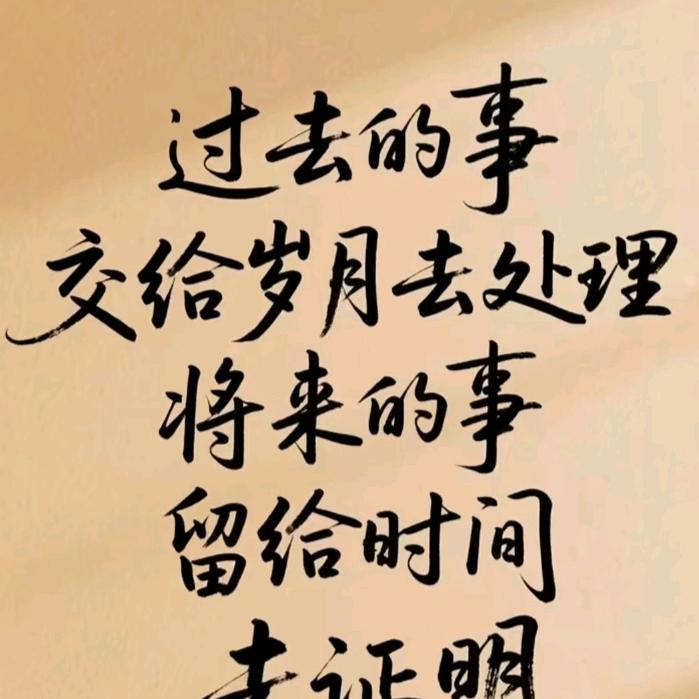 过去的事
交给岁月去处理
将来的事
留给时间
去证明